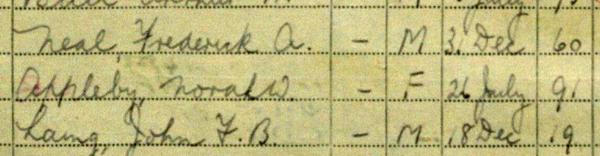 Neal, Frederick A. – M 31 Dec 60
Appleby, Norah W. – F 26 July 91
Laing, John F. B. – M 18 Dec 19